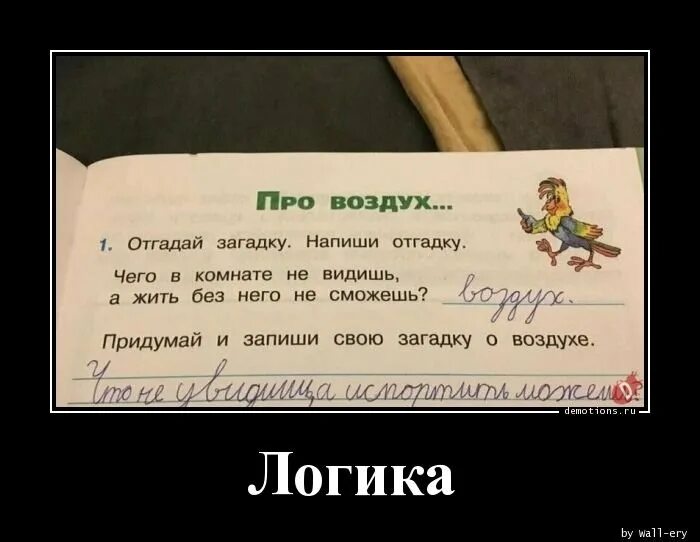 Про воздух...
1. Отгадай загадку. Напиши отгадку.
Чего в комнате не видишь,
а жить без него не сможешь? воздух.
Придумай и запиши свою загадку о воздухе.
Что не увидишь, а испортить можешь?
demotions.ru
Логика
by wall-ery